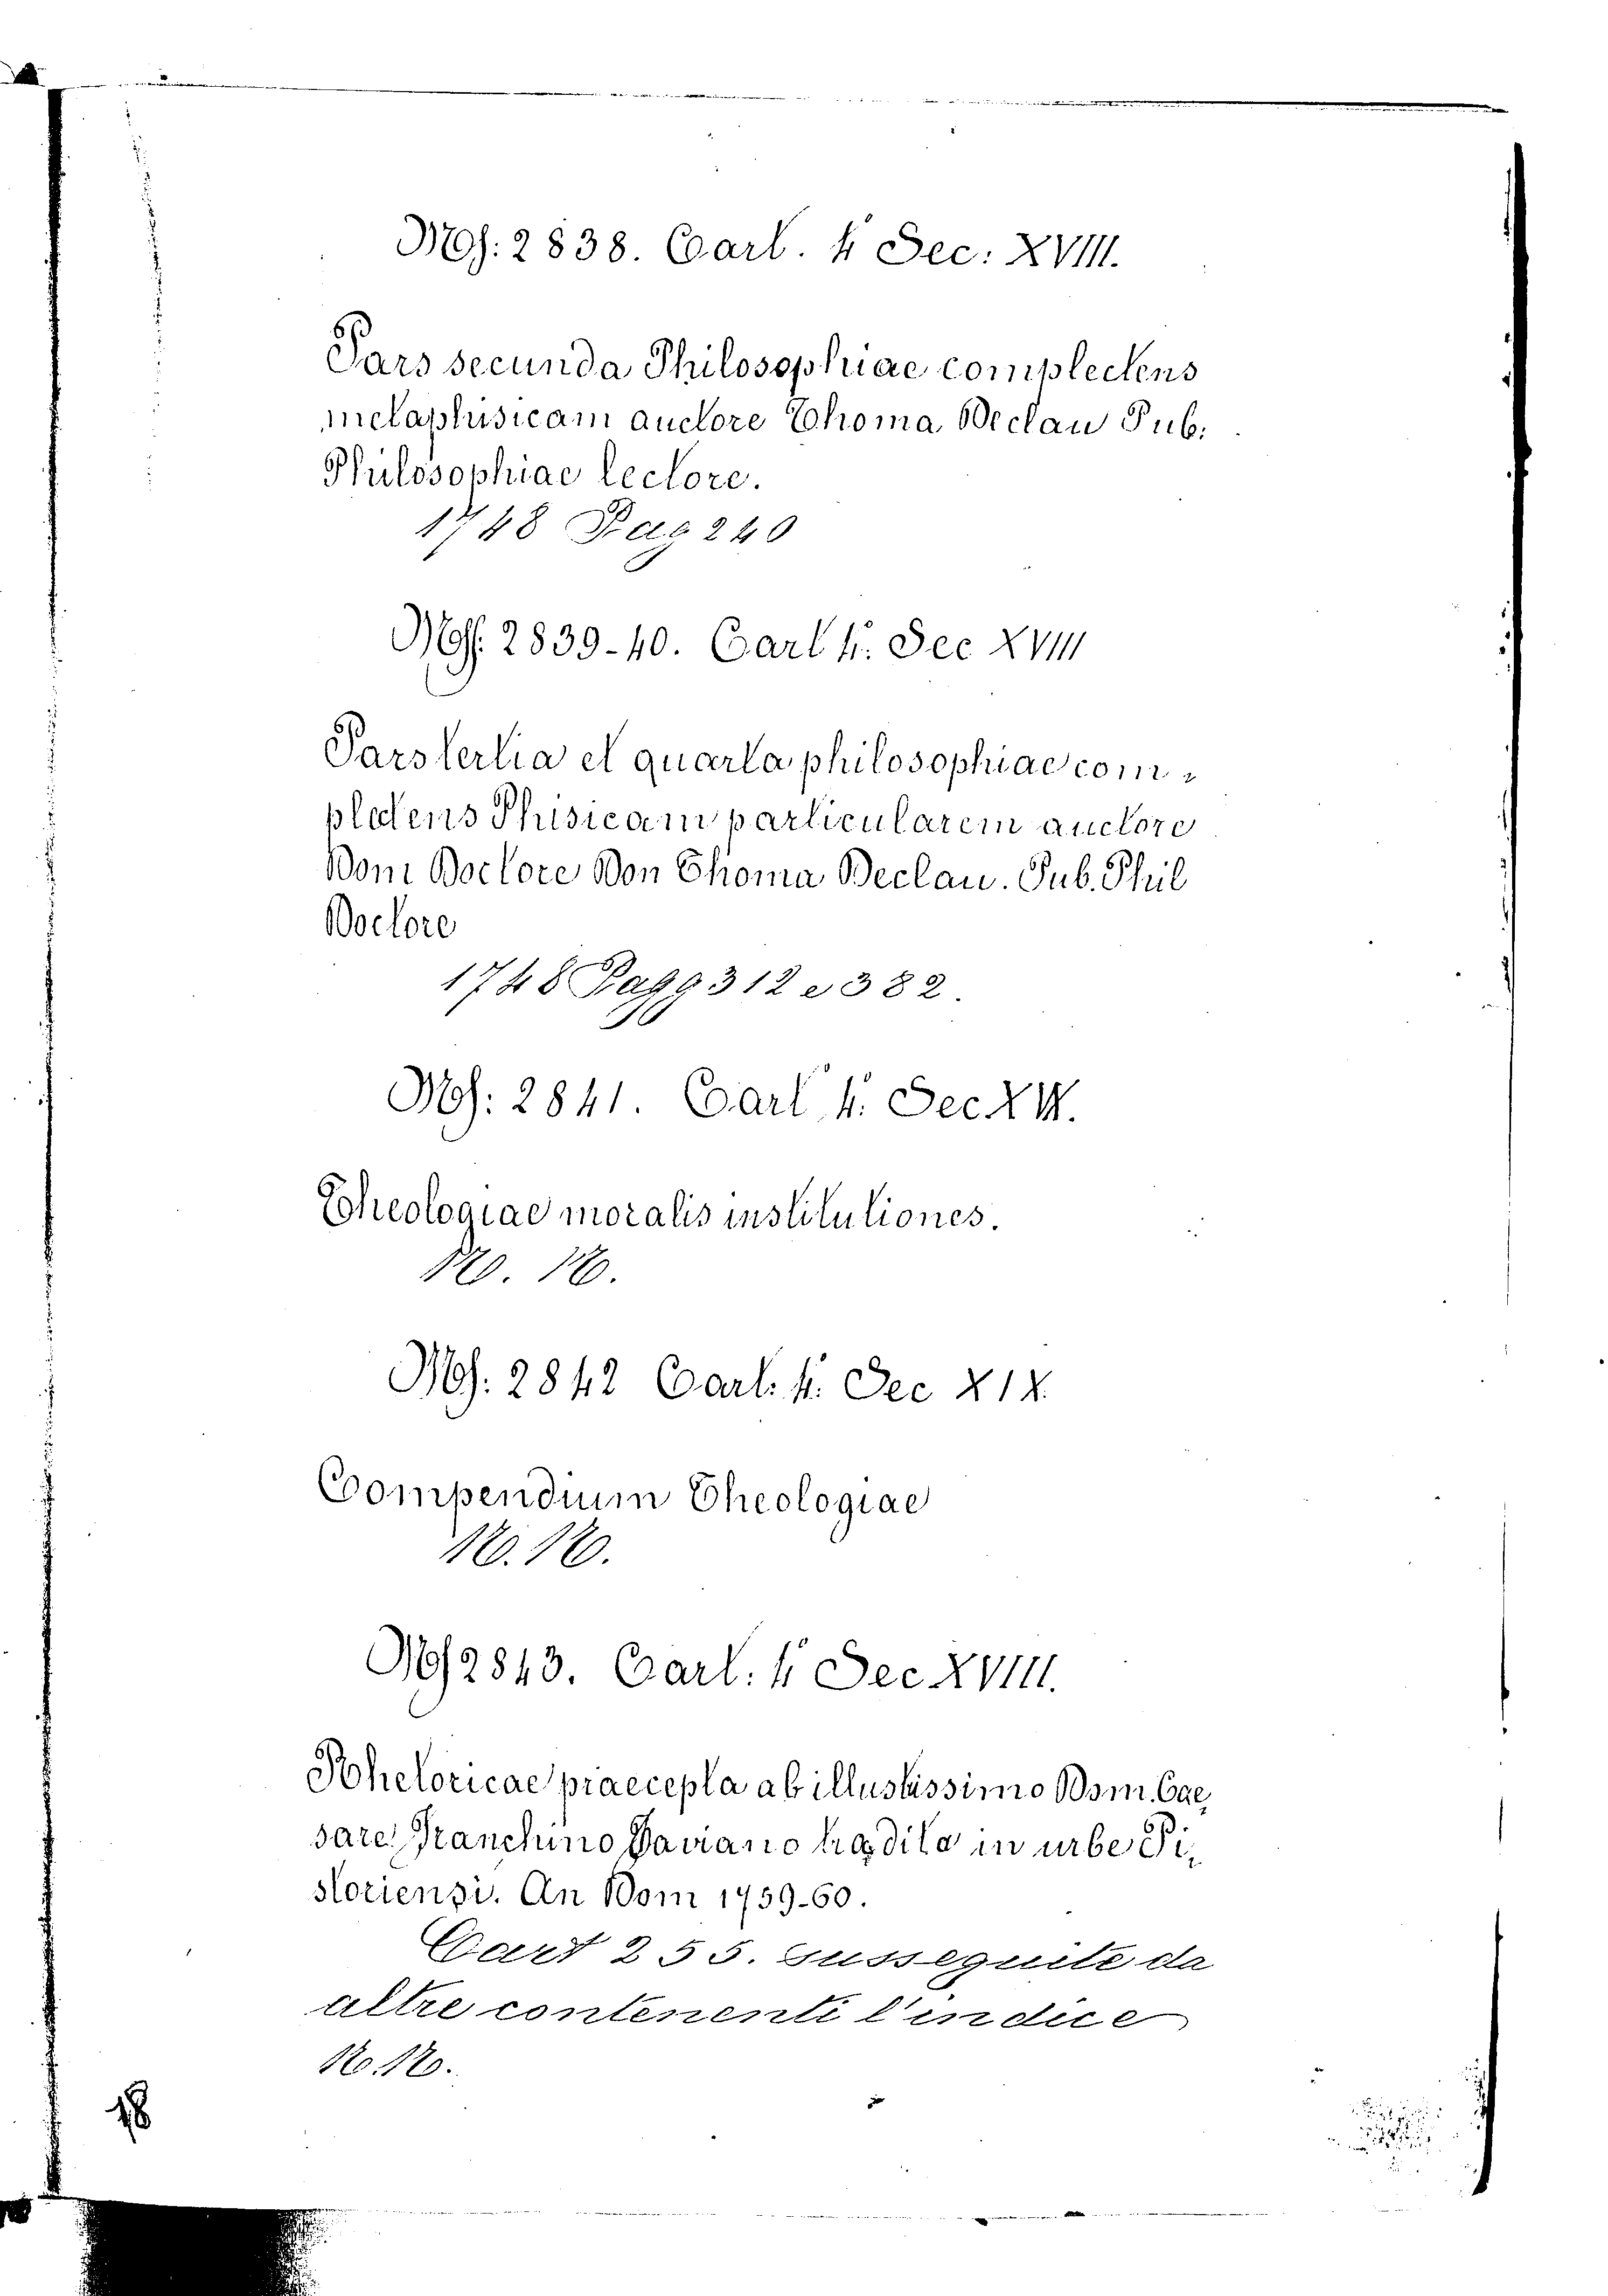 Ms: 2838. Cart. 4° Sec: XVIII.
Pars secunda Philosophiae complectens
metaphisicam auctore Thoma Declau Pub.
Philosophiae lectore.
1748 Pag 240
Mss. 2839-40. Cart 4°. Sec XVIII
Pars tertia et quarta philosophiae com-
plectens Phisicam particularem auctore
Dom Doctore Don Thoma Declau. Pub. Phil
Doctore
1748 Pagg 312 e 382.
Ms: 2841. Cart 4°. Sec
Theologiae moralis institutiones.
N. N.
Ms: 2842 Cart. 4°. Sec XIX.
Compendium Theologiae
N. N.
Ms 2843. Cart. 4° Sec XVIII.
Rhetoricae praecepta ab illustrissimo Dom. Cae,
sare Franchino Taviano tradita in urbe Pi,
storiensi. An Dom 1759-60.
Cart 255. susseguite da
altre contenenti l'indice
N. N.
18